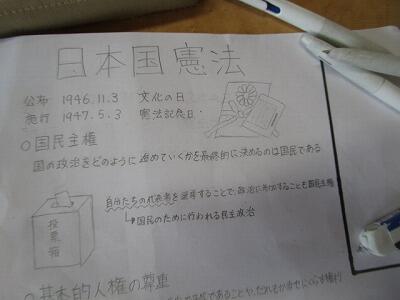 日本国憲法
公布 1946.11.3 文化の日
施行 1947.5.3 憲法記念日
○国民主権
国の政治をどのように進めていくかを最終的に決めるのは国民である
自分たちの代表者を選挙することで、政治に参加することも国民主権
↳国民のために行われる民主政治
投票箱
○基本的人権の尊重